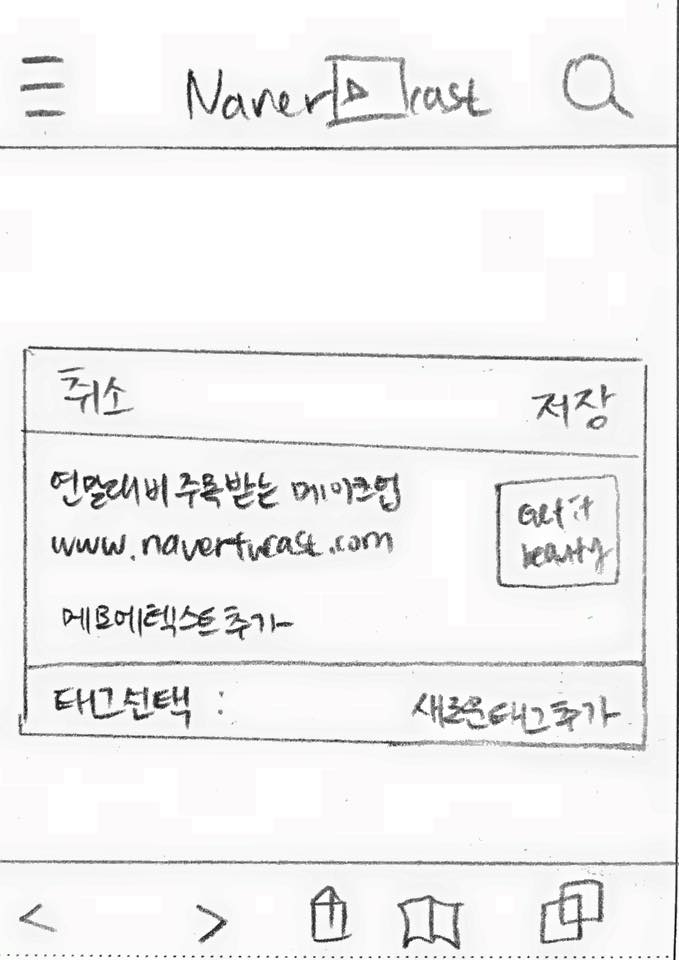 Naver cast
취소 저장
연말대비 주목받는 메이크업
www.navertvcast.com
Get it
beauty
메모에텍스트추가
태그선택 : 새로운태그추가